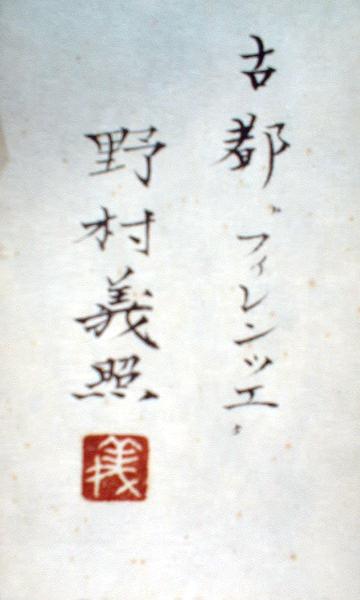 古都〝フィレンツェ〟
野村義照
義